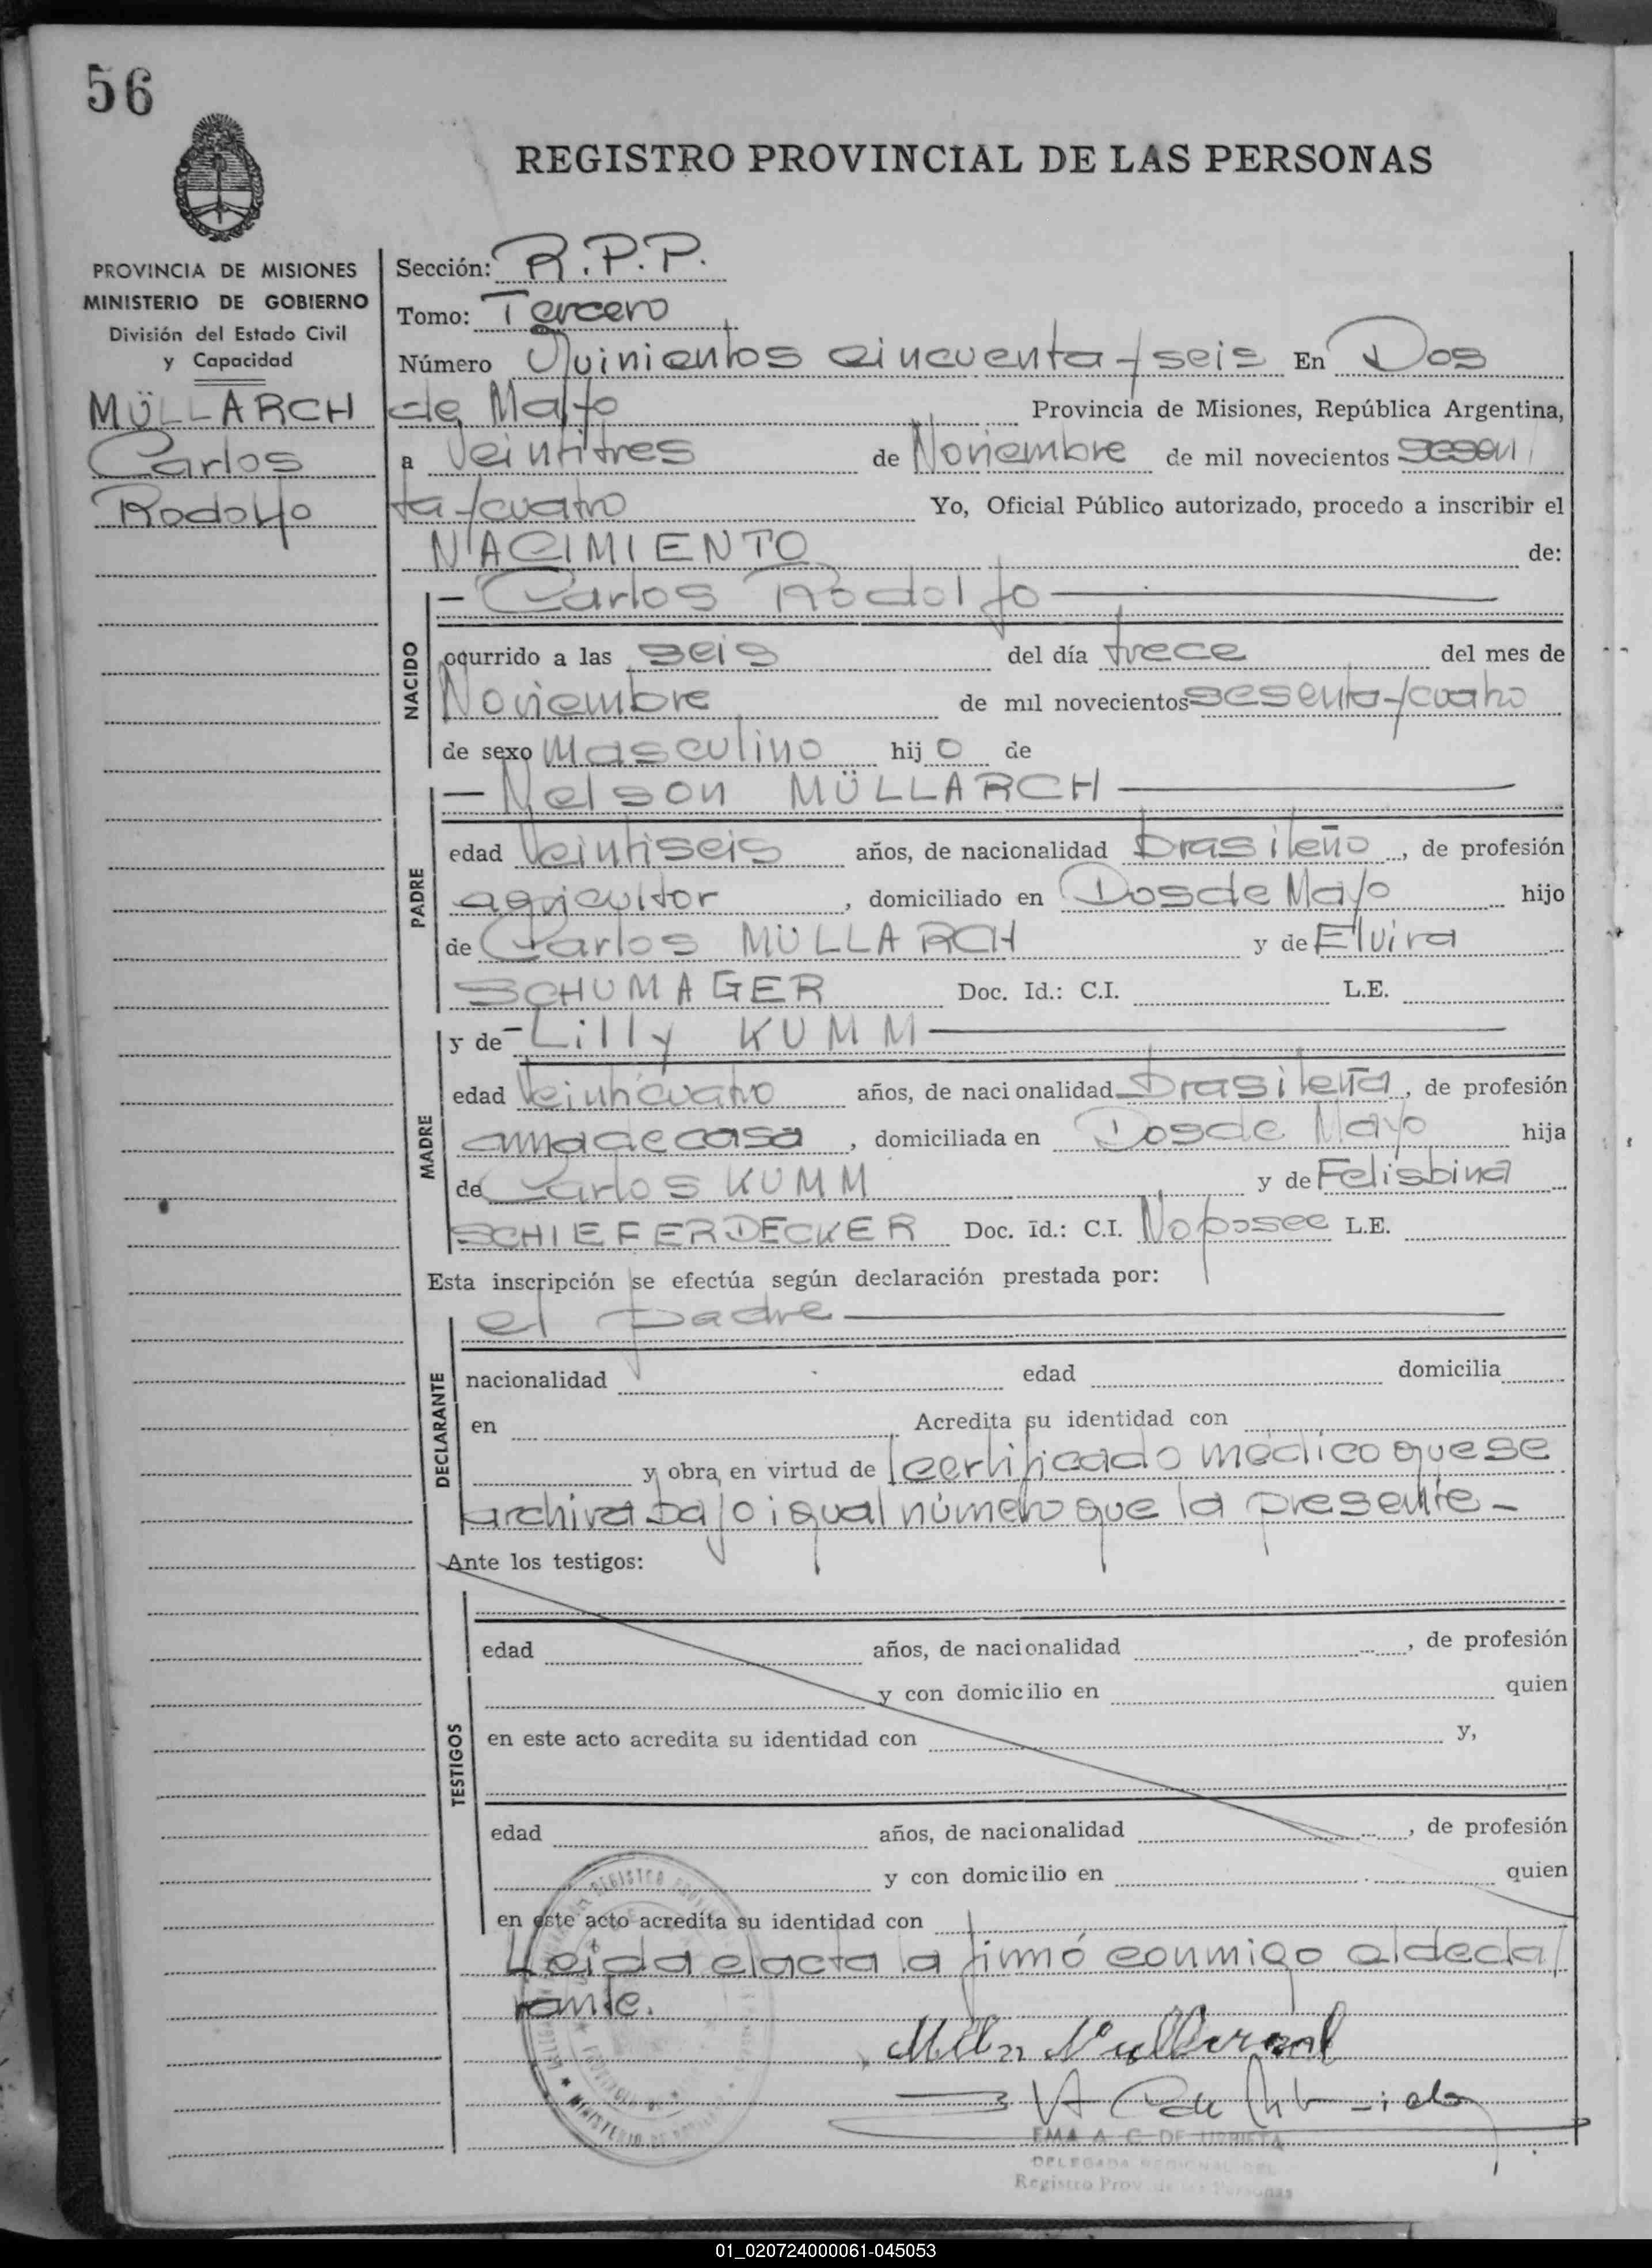 56
REGISTRO PROVINCIAL DE LAS PERSONAS
PROVINCIA DE MISIONES
MINISTERIO DE GOBIERNO
División del Estado Civil
y Capacidad
MÜLLARCH
Carlos
Rodolfo
Sección: R.P.P.
Tomo: Tercero
Número Quinientos cincuenta y seis En Dos
de Mayo Provincia de Misiones, República Argentina,
a Veintitres de Noviembre de mil novecientos sesen
ta y cuatro Yo, Oficial Público autorizado, procedo a inscribir el
NACIMIENTO de:
NACIDO
- Carlos Rodolfo
ocurrido a las seis del día trece del mes de
Noviembre de mil novecientos sesenta y cuatro
de sexo masculino hijo de
PADRE
- Nelson MÜLLARCH
edad Veintiseis años, de nacionalidad brasileño, de profesión
agricultor, domiciliado en Dos de Mayo hijo
de Carlos MÜLLARCH y de Elvira
SCHUMAGER Doc. Id.: C.I. L.E.
MADRE
y de - Lilly KUMM
edad Veinticuatro años, de nacionalidad brasileña, de profesión
ama de casa, domiciliada en Dos de Mayo hija
de Carlos KUMM y de Felisbina
SCHIEFERDECKER Doc. Id.: C.I. No posee L.E.
Esta inscripción se efectúa según declaración prestada por:
DECLARANTE
el padre
nacionalidad edad domicilia
en Acredita su identidad con
y obra en virtud de certificado médico que se
archiva bajo igual número que la presente -
Ante los testigos:
TESTIGOS
edad años, de nacionalidad , de profesión
y con domicilio en quien
en este acto acredita su identidad con y,
edad años, de nacionalidad , de profesión
y con domicilio en quien
en este acto acredita su identidad con
Leida el acta la firmó conmigo el decla
rante.
EMA A. C. DE URRIETA
DELEGADA REGIONAL DEL
Registro Prov. de las Personas
01_020724000061-045053